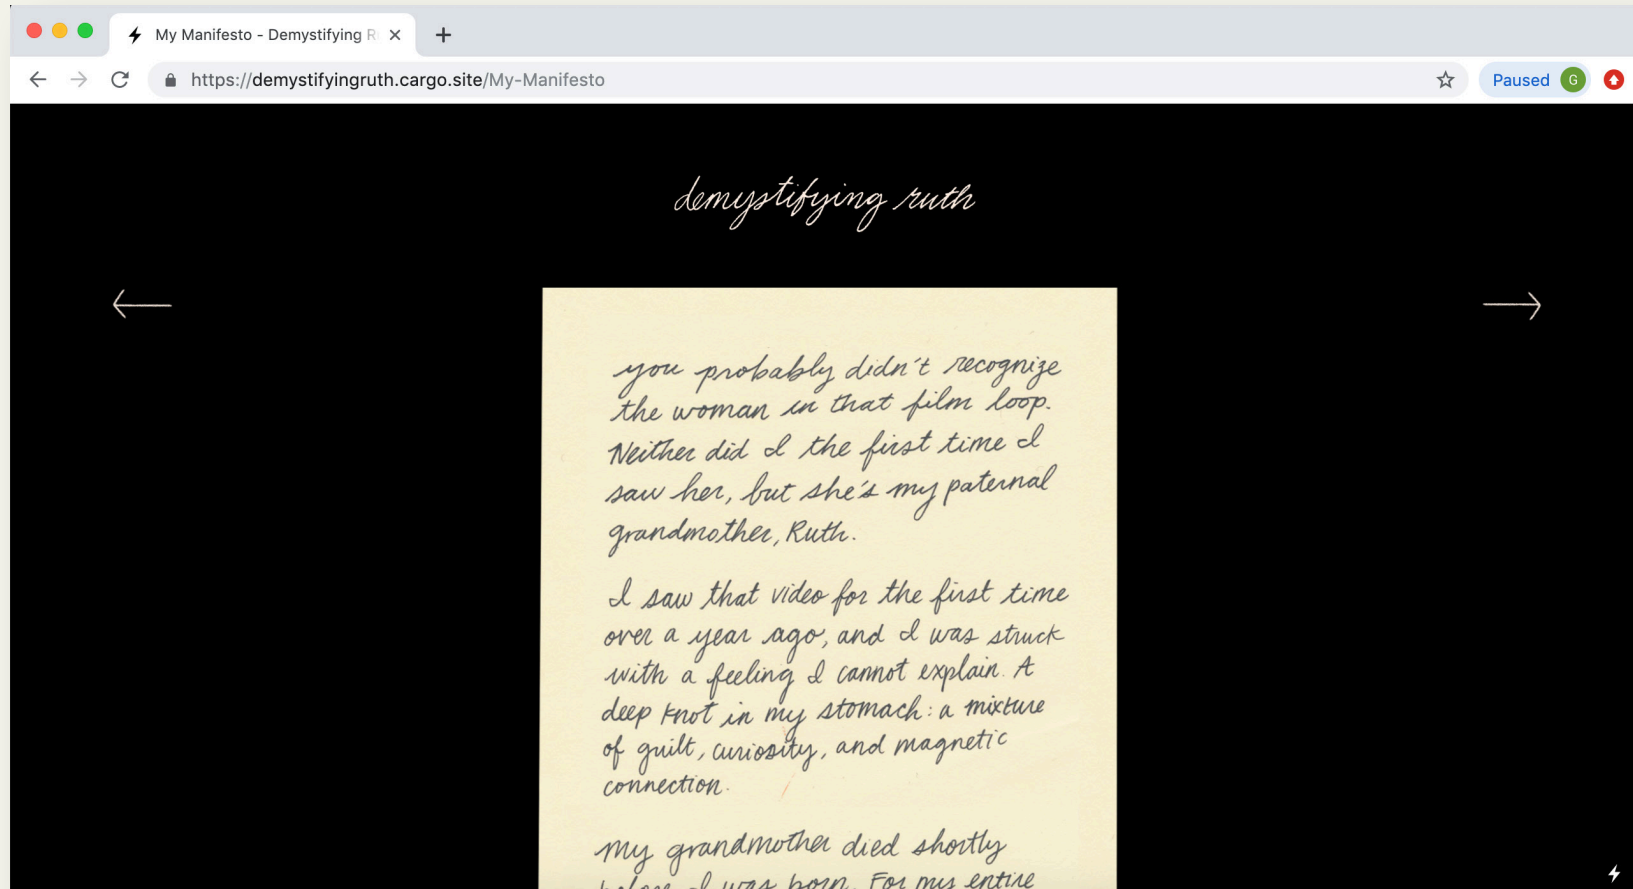 My Manifesto - Demystifying R
https://demystifyingruth.cargo.site/My-Manifesto
Paused
G
demystifying ruth
you probably didn't recognize
the woman in that film loop.
Neither did I the first time I
saw her, but she's my paternal
grandmother, Ruth.
I saw that video for the first time
over a year ago, and I was struck
with a feeling I cannot explain. A
deep knot in my stomach: a mixture
of guilt, curiosity, and magnetic
connection.
my grandmother died shortly
before I was born. For my entire